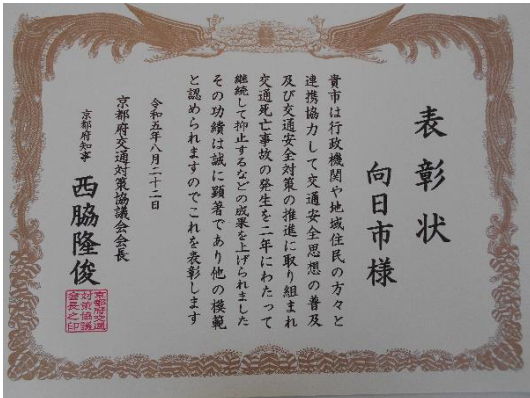 表彰状
向日市様
貴市は行政機関や地域住民の方々と
連携協力して交通安全思想の普及
及び交通安全対策の推進に取り組まれ
交通死亡事故の発生を二年にわたって
継続して抑止するなどの成果を上げられました
その功績は誠に顕著であり他の模範
と認められますのでこれを表彰します
令和五年八月二十二日
京都府交通対策協議会会長
京都府知事 西脇隆俊
京都府交通
対策協議
会長之印